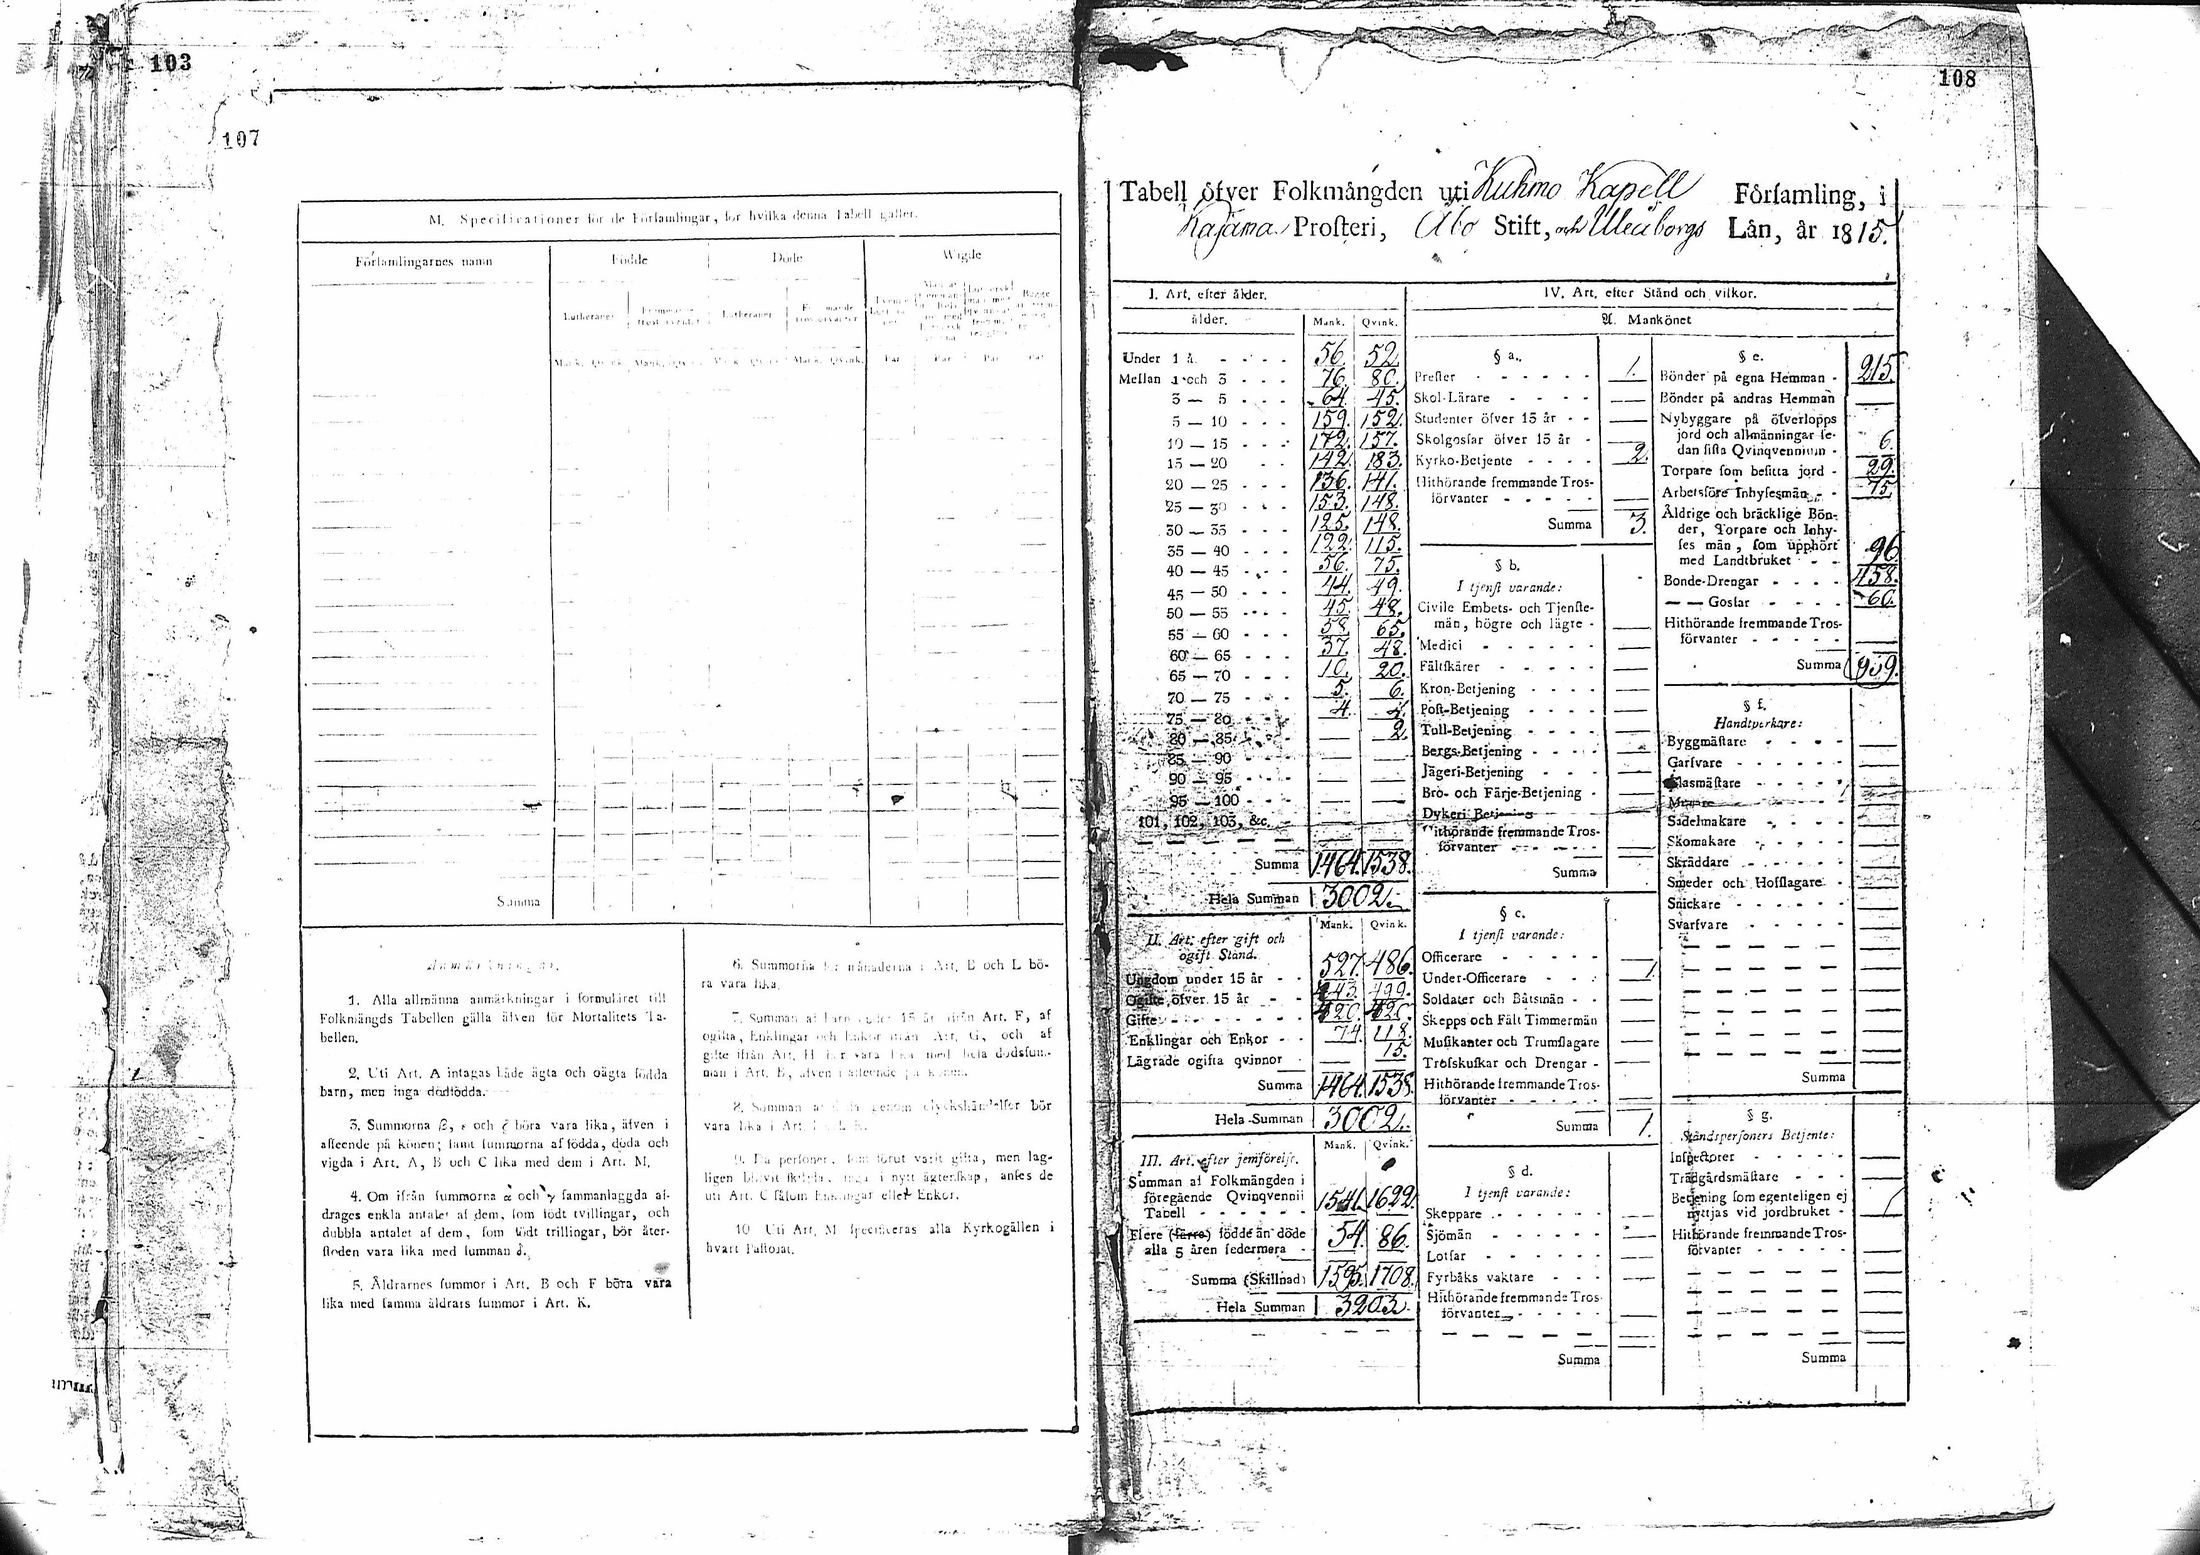 103
107
M. Specificationer för de Församlingar, för hvilka denna Tabell gäller.
Församlingarnes namn
Födde
Döde
Wigde
Lutheraner
Lutheraner
Par
Par
Par
Par
Summa
Anmärkningar.
1. Alla allmänna anmärkningar i formuläret till
Folkmängds Tabellen gälla äfven för Mortalitets Ta-
bellen.
2. Uti Art. A intagas både ägta och oägta födda
barn, men inga dödfödda.
3. Summorna β, ε och ζ böra vara lika, äfven i
afseende på könen; samt summorna af födda, döda och
vigda i Art. A, B och C lika med dem i Art. M.
4. Om ifrån summorna α och γ sammanlaggda af-
drages enkla antalet af dem, som födt tvillingar, och
dubbla antalet af dem, som födt trillingar, bör åter-
stoden vara lika med summan δ.
5. Åldrarnes summor i Art. B och F böra vara
lika med samma åldrars summor i Art. K.
6. Summorna för månaderna i Art. B och L bö-
ra vara lika.
7. Summan af barn under 15 år ifrån Art. F, af
ogifta, Enklingar och Enkor ifrån Art. G, och af
gifte ifrån Art. H bör vara lika med hela dödssum-
man i Art. B, äfven i afseende på könen.
8. Summan af döda genom olyckshändelser bör
vara lika i Art.
9. De personer, som förut varit gifta, men lag-
ligen blifvit skilda, inga i nytt ägtenskap, anses de
uti Art. C såsom Enklingar eller Enkor.
10. Uti Art. M specificeras alla Kyrkogällen i
hvart Pastorat.
108
Tabell öfver Folkmängden uti Kuhmo Kapell Församling, i
Kajana Prosteri, Åbo Stift, och Uleåborgs Län, år 1815.
I. Art. efter ålder.
ålder. Mank. Qvink.
Under 1 å. 56. 52.
Mellan 1 och 3 76. 80.
3 — 5 64. 45.
5 — 10 159. 152.
10 — 15 172. 157.
15 — 20 142. 183.
20 — 25 136. 141.
25 — 30 153. 148.
30 — 35 125. 148.
35 — 40 122. 115.
40 — 45 56. 75.
45 — 50 44. 49.
50 — 55 45. 48.
55 — 60 58. 65.
60 — 65 37. 48.
65 — 70 10. 20.
70 — 75 5. 6.
75 — 80 4. 4.
80 — 85 — 2.
85 — 90 — —
90 — 95 — —
95 — 100 — —
101, 102, 103, &c. — —
Summa 1464. 1538.
Hela Summan 3002.
Mank. Qvink.
II. Art. efter gift och
ogift Stånd.
Ungdom under 15 år 527. 486.
Ogifte öfver 15 år 443. 499.
Gifte 420. 420.
Enklingar och Enkor 74. 118.
Lägrade ogifta qvinnor — 15.
Summa 1464. 1538.
Hela Summan 3002.
Mank. Qvink.
III. Art. efter jemförelse.
Summan af Folkmängden i
föregående Qvinqvennii
Tabell 1541. 1622.
Flere (färre) födde än döde
alla 5 åren sedermera 54. 86.
Summa (Skillnad) 1595. 1708.
Hela Summan 3203.
IV. Art. efter Stånd och vilkor.
A. Mankönet
§ a.
Prester 1.
Skol-Lärare —
Studenter öfver 15 år —
Skolgossar öfver 15 år —
Kyrko-Betjente 2.
Hithörande fremmande Tros-
förvanter —
Summa 3.
§ b.
I tjenst varande:
Civile Embets- och Tjenste-
män, högre och lägre —
Medici —
Fältskärer —
Kron-Betjening —
Post-Betjening —
Tull-Betjening —
Bergs-Betjening —
Jägeri-Betjening —
Bro- och Färje-Betjening —
Dykeri Betjening —
Hithörande fremmande Tros-
förvanter —
Summa
§ c.
I tjenst varande:
Officerare —
Under-Officerare 1.
Soldater och Båtsmän —
Skepps och Fält Timmermän —
Musikanter och Trumslagare —
Trosskuskar och Drengar —
Hithörande fremmande Tros-
förvanter —
Summa 1.
§ d.
I tjenst varande:
Skeppare —
Sjömän —
Lotsar —
Fyrbåks vaktare —
Hithörande fremmande Tros-
förvanter —
Summa
§ e.
Bönder på egna Hemman 215.
Bönder på andras Hemman —
Nybyggare på öfverlopps
jord och allmänningar se-
dan sista Qvinqvennium 6.
Torpare som besitta jord 29.
Arbetsföre Inhysesmän 75.
Åldrige och bräcklige Bön-
der, Torpare och Inhy-
ses män, som upphört
med Landtbruket 96.
Bonde-Drengar 458.
— — Gossar 60.
Hithörande fremmande Tros-
förvanter —
Summa 939.
§ f.
Handtverkare:
Byggmästare —
Garfvare —
Glasmästare —
Murare —
Sadelmakare —
Skomakare —
Skräddare —
Smeder och Hofslagare —
Snickare —
Svarfvare —
Summa
§ g.
Ståndspersoners Betjente:
Inspectorer —
Trädgårdsmästare —
Betjening som egenteligen ej
nyttjas vid jordbruket
Hithörande fremmande Tros-
förvanter —
Summa